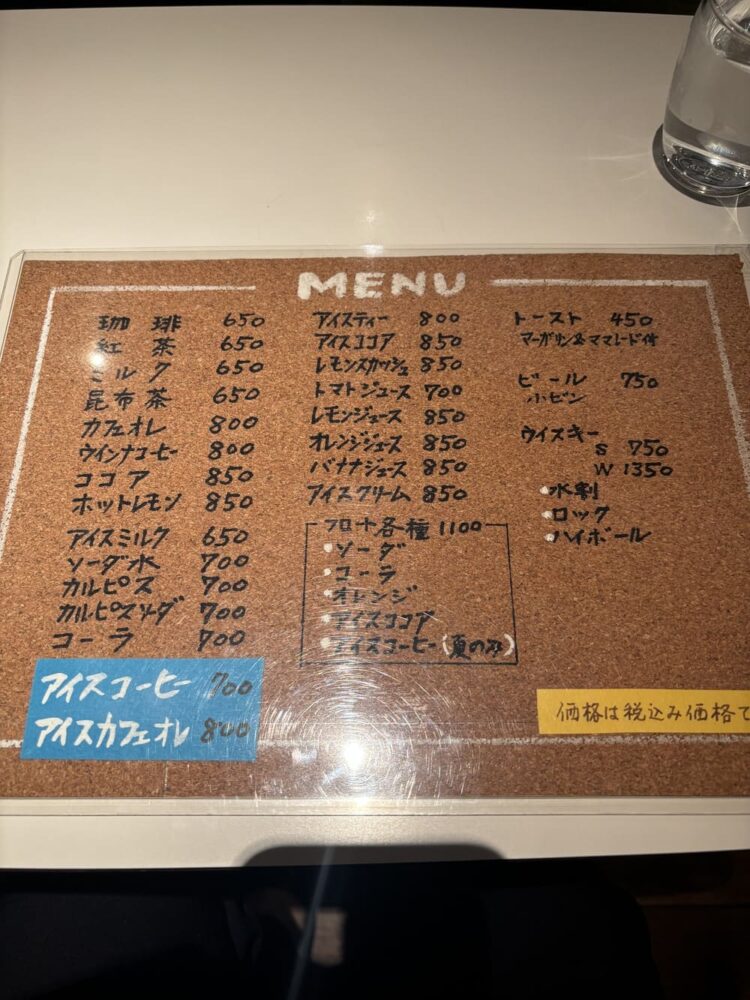 MENU
珈琲 650
紅茶 650
ミルク 650
昆布茶 650
カフェオレ 800
ウインナコーヒー 800
ココア 850
ホットレモン 850
アイスミルク 650
ソーダ水 700
カルピス 700
カルピスソーダ 700
コーラ 700
アイスコーヒー 700
アイスカフェオレ 800
アイスティー 800
アイスココア 850
レモンスカッシュ 850
トマトジュース 700
レモンジュース 850
オレンジジュース 850
バナナジュース 850
アイスクリーム 850
フロート各種 1100
・ソーダ
・コーラ
・オレンジ
・アイスココア
・アイスコーヒー(夏のみ)
トースト 450
マーガリン&ママレード付
ビール 750
小ビン
ウイスキー
S 750
W 1350
・水割
・ロック
・ハイボール
価格は税込み価格で